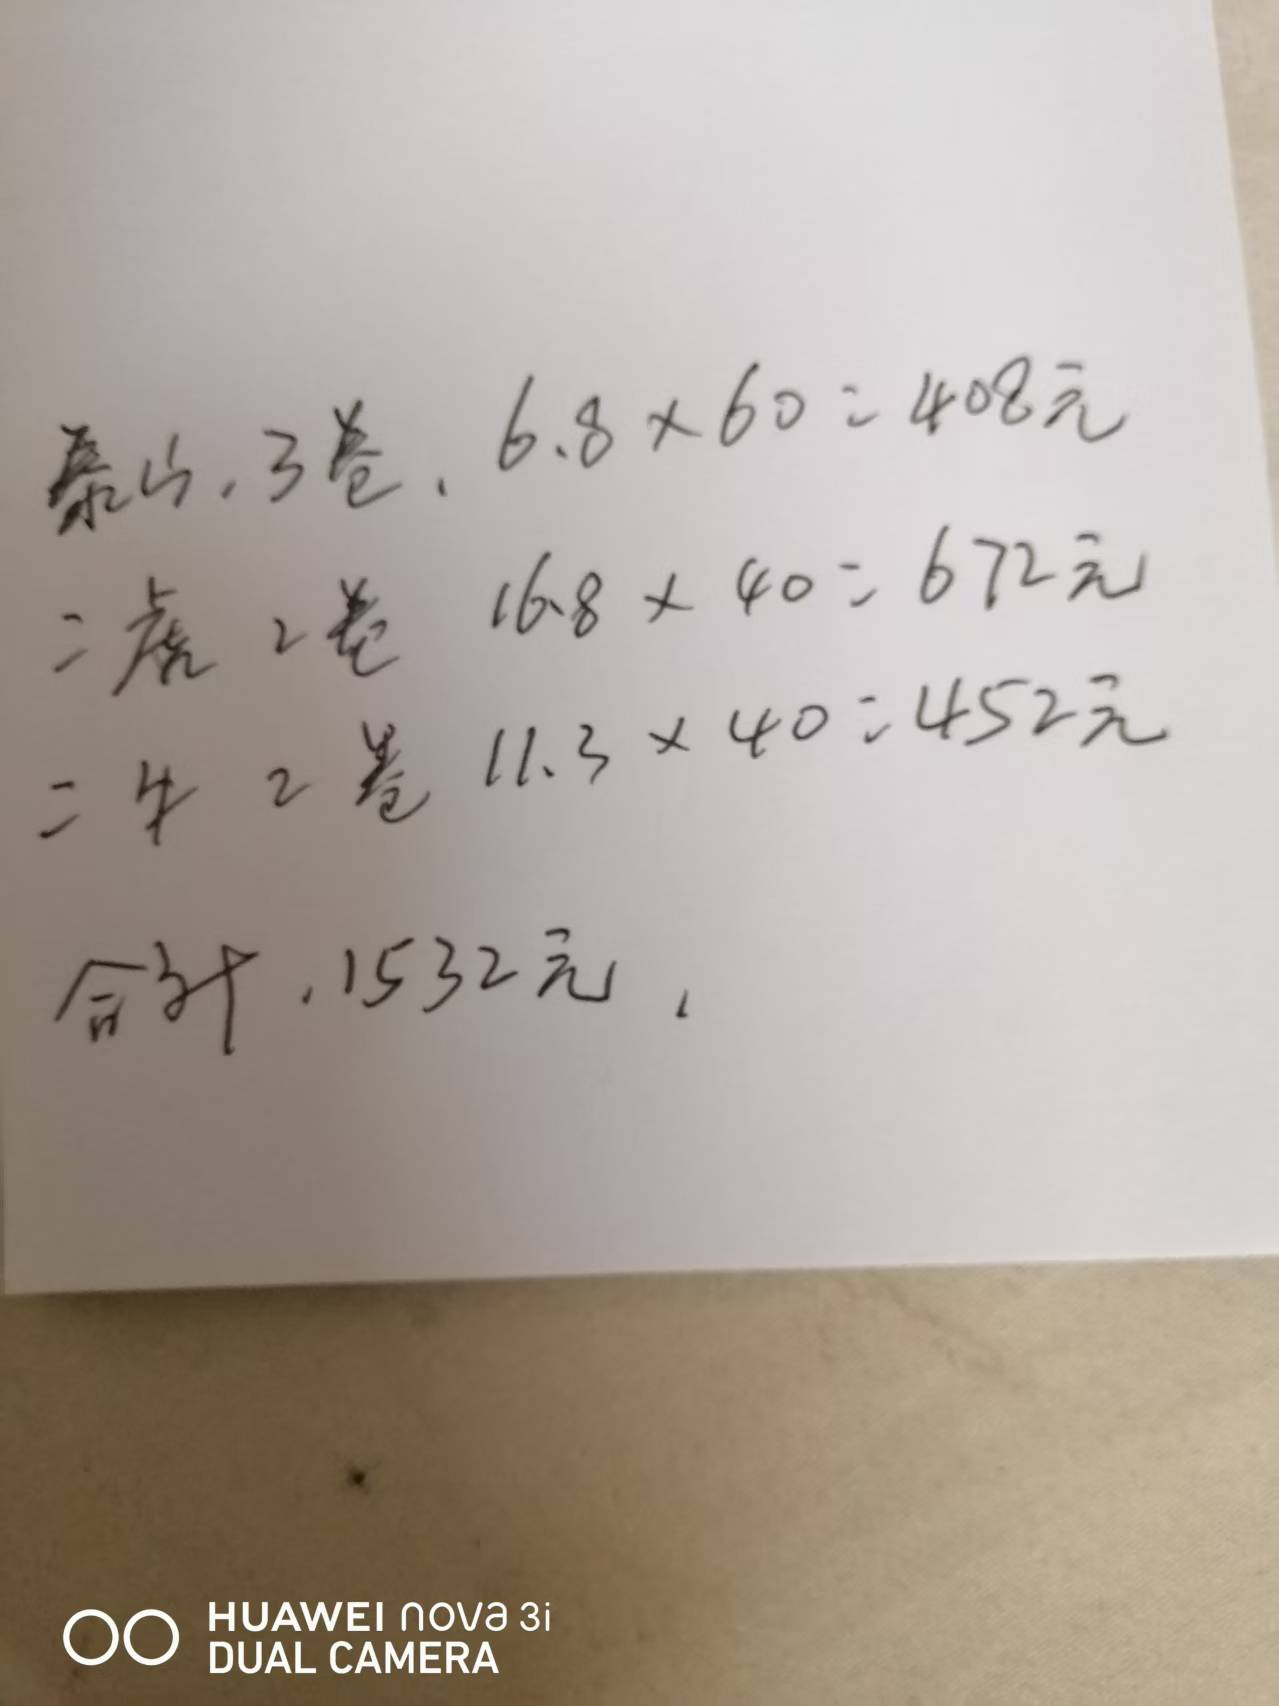 泰山.3卷. 6.8×60=408元
二虎 2卷 16.8×40=672元
二牛 2卷 11.3×40=452元
合计.1532元.
HUAWEI nova 3i
DUAL CAMERA